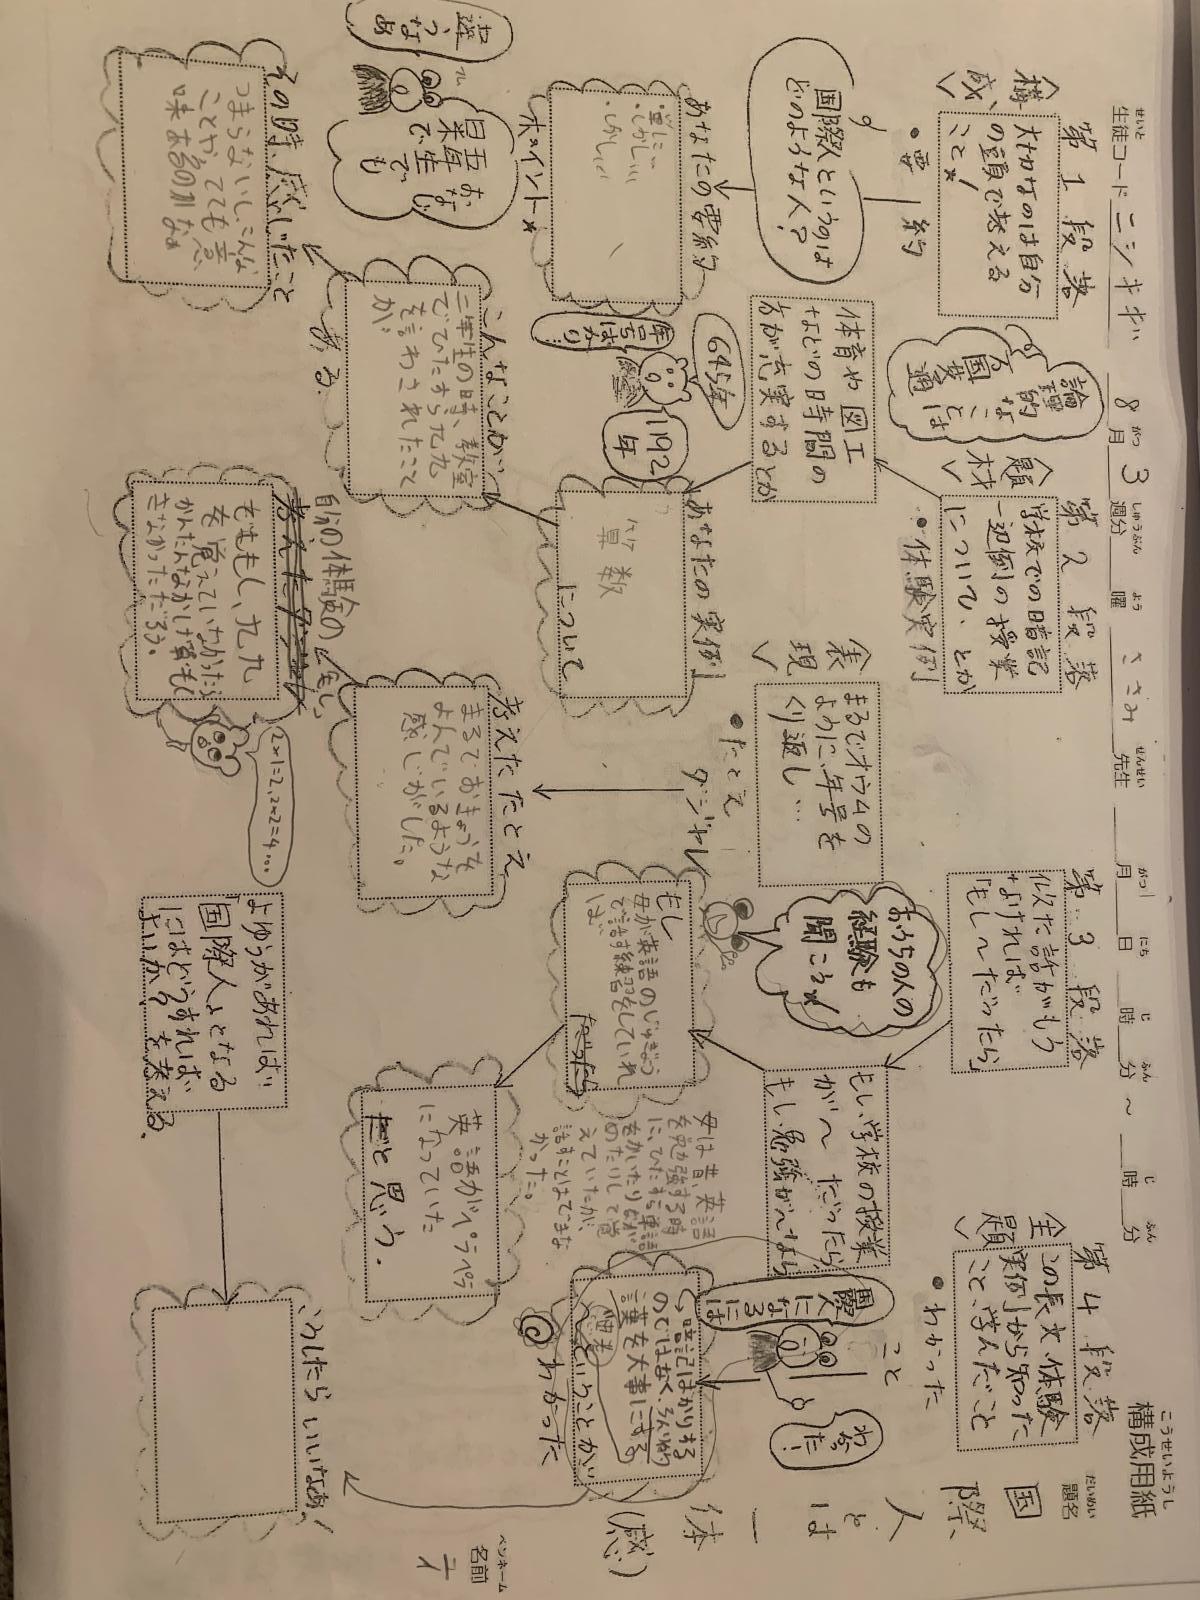 こうせいようし
構成用紙
だいめい
題名
国
際
人
と
は
一
体
（感）
ペンネーム
名前
せいと
生徒コード
8
がつ
月
3
しゅうぶん
週分
よう
曜
ささみ
せんせい
先生
がつ
月
にち
日
じ
時
ふん
分
～
じ
時
ふん
分
構成
第1段落
大切なのは自分
の頭で考える
こと★!
・要約
国際人というのは
どのような人?
あなたの要約
ポイント★
論理
的な
ことは
万国共
通
題材
第2段落
学校での暗記
一辺倒の授業
について、とか
体育や図工
などの時間の
方が充実するとか
・体験実例
645年
1192
年
あなたの実例
算数
について
こんなことが
二年生の時、教室
でひたすら九九
を言わされたこと
が
ある
その時、感じたこと
つまらないし、こんな
ことやってても意
味あるのかなぁ
表現
まるでオウムの
ように、年号を
くり返し…
・たとえ
ダジャレ
考えたたとえ
まるでおきょうを
よんでいるような
感じがした。
自分の体験の
もし、
もしも、九九
を覚えていなかったら
かんたんなかけ算もで
きなかっただろう。
2×1=2,2×2=4…
第3段落
似た話がもう
なければ
「もし～だったら」
おうちの人の
経験も
聞こう★!
もし、学校の授業
が～だったら
もし、勉強が～なら
もし
母が英語のじゅぎょう
で話す練習をしていれ
ば、
母は昔、英語
を勉強する時
に、ひたすら単語
をかいたりなが
めたりして覚
えていたが、
話すことはできな
かった。
英語がペラペラ
になっていた
と思う。
よゆうがあれば…
「国際人」となる
にはどうすれば
よいか?を考える。
主題
第4段落
この長文、体験
実例から知った
こと、学んだこと
・わかった
こと
国際
人に
なる
には
わかっ
た!
暗記ばかりする
のではなく、ろんり的
言葉を大事にする
ということが
わかった
こうしたらいいなぁ!